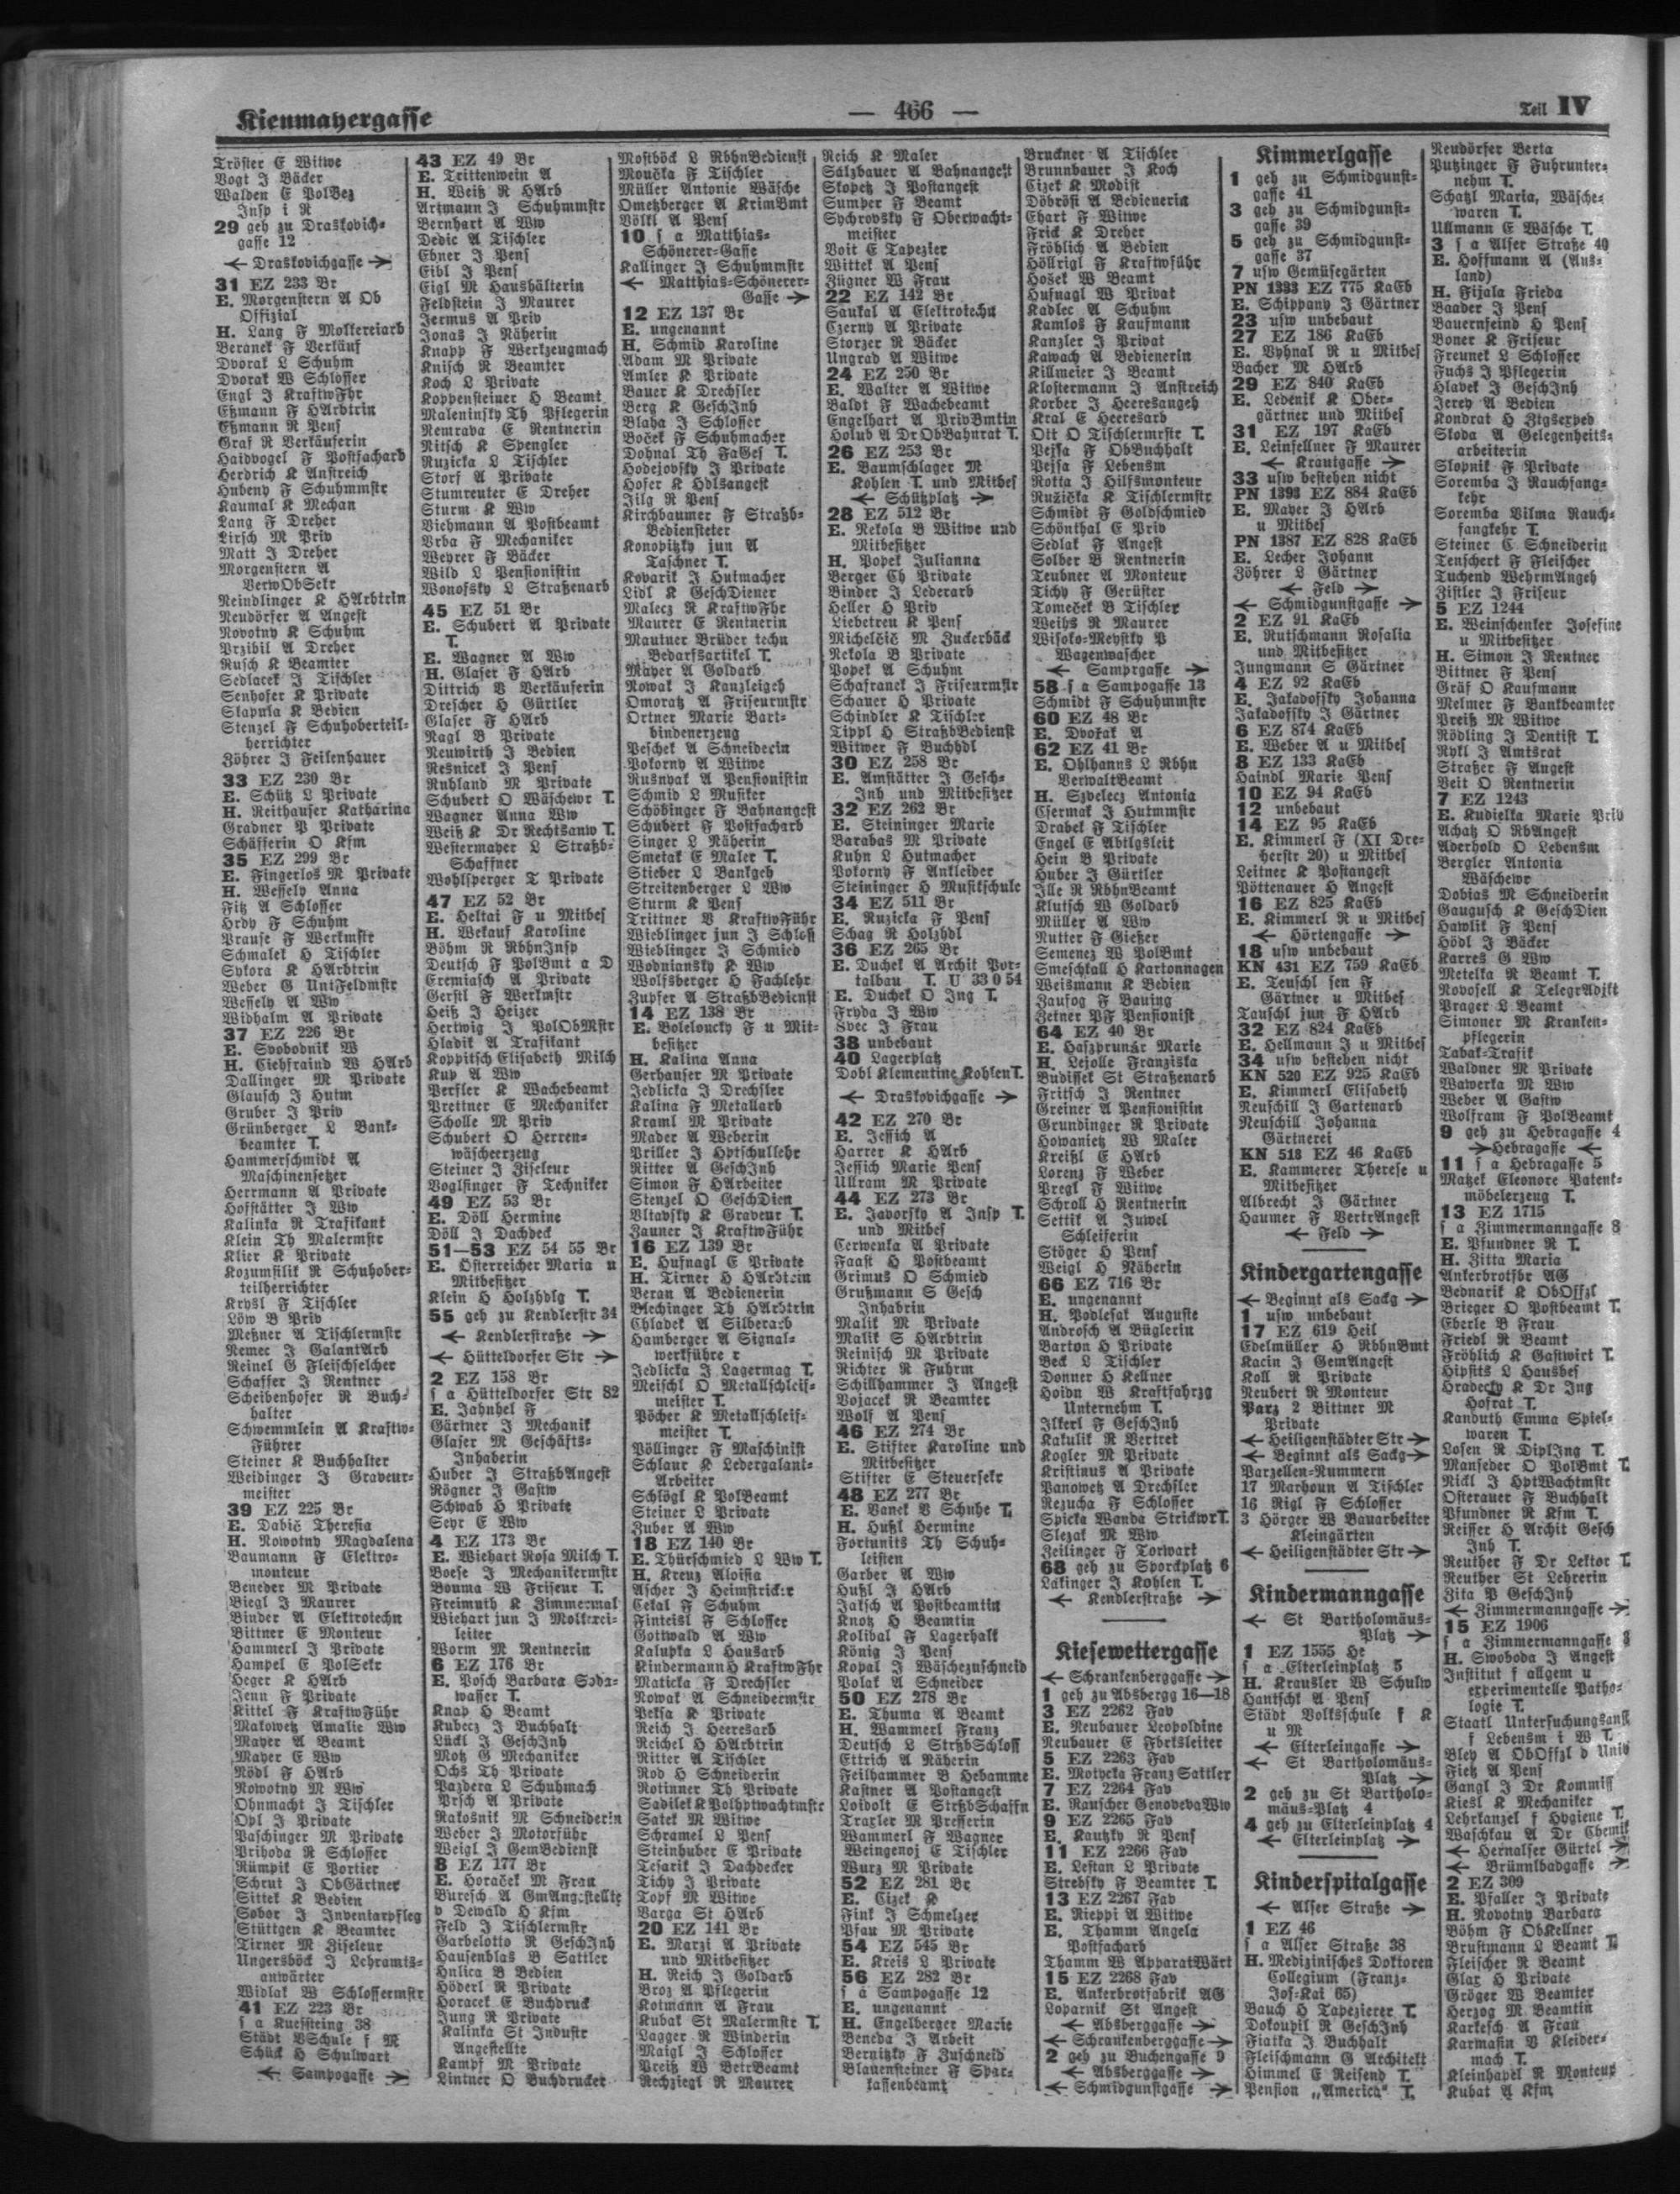 Kienmayergasse
— 466 —
Teil IV
Tröster E Witwe
Vogt J Bäcker
Walden E PolBez
Insp i R
29 geh zu Draskovich-
gasse 12
← Draskovichgasse →
31 EZ 233 Br
E. Morgenstern A Ob
Offizial
H. Lang F Molkereiarb
Beranek F Verkäuf
Dvorak L Schuhm
Dvorak W Schlosser
Engl J KraftwFhr
Eßmann F HArbtrin
Eßmann R Pens
Graf R Verkäuferin
Haidvogel F Postfacharb
Herdrich K Anstreich
Hubeny F Schuhmmstr
Kaumal K Mechan
Lang F Dreher
Lirsch M Priv
Matt J Dreher
Morgenstern A
VerwObSekr
Neindlinger K HArbtrin
Neudörfer A Angest
Novotny K Schuhm
Przibil A Dreher
Rusch K Beamter
Sedlacek J Tischler
Senhofer K Private
Slapula K Bedien
Stenzel F Schuhoberteil-
herrichter
Zöhrer J Feilenhauer
33 EZ 230 Br
E. Schütz L Private
H. Reithauser Katharina
Gradner P Private
Schäfferin O Kfm
35 EZ 299 Br
E. Fingerlos M Private
H. Wessely Anna
Fitz A Schlosser
Hrdy F Schuhm
Prause F Werkmstr
Schmalek H Tischler
Sykora K HArbtrin
Weber G UntFeldmstr
Wessely A Ww
Widhalm A Private
37 EZ 226 Br
E. Svobodnik W
H. Ciehfraind W HArb
Dallinger M Private
Glausch J Hutm
Gruber J Priv
Grünberger L Bank-
beamter T.
Hammerschmidt A
Maschinensetzer
Herrmann A Private
Hofstätter J Ww
Kalinka R Trafikant
Klein Th Malermstr
Klier K Private
Kozumsilik R Schuhober-
teilherrichter
Krysl F Tischler
Löw B Priv
Meßner A Tischlermstr
Nemec J GalantArb
Reinel G Fleischselcher
Schaffer J Rentner
Scheibenhofer R Buch-
halter
Schwemmlein A Kraftw-
Führer
Steiner K Buchhalter
Weidinger J Graveur-
meister
39 EZ 225 Br
E. Dabič Theresia
H. Nowotny Magdalena
Baumann F Elektro-
monteur
Beneder M Private
Biegl J Maurer
Binder A Elektrotechn
Bittner E Monteur
Hammerl J Private
Hampel E PolSekr
Heger K HArb
Jenn F Private
Kittel F KraftwFühr
Makowetz Amalie Ww
Mayer A Beamt
Mayer E Ww
Mödl F HArb
Nowotny M Ww
Ohnmacht J Tischler
Opl J Private
Paschinger M Private
Prihoda R Schlosser
Rümpik E Portier
Schrut J ObGärtner
Sittek K Bedien
Sobor J Inventarpfleg
Stüttgen K Beamter
Tirner M Ziseleur
Ungersböck J Lehramts-
anwärter
Widlak W Schlossermstr
41 EZ 223 Br
s a Kuefsteing 38
Städt VSchule f M
Schück H Schulwart
← Sampogasse →
43 EZ 49 Br
E. Trittenwein A
H. Weiß R HArb
Artmann J Schuhmmstr
Bernhart A Ww
Dedic A Tischler
Ebner J Pens
Eibl J Pens
Eigl M Haushälterin
Feldstein J Maurer
Jermus A Priv
Jonas J Näherin
Knapp F Werkzeugmach
Knisch R Beamter
Koch L Private
Koppensteiner H Beamt
Maleninsky Th Pflegerin
Nemrava E Rentnerin
Nitsch K Spengler
Ruzicka L Tischler
Storf A Private
Stumreuter E Dreher
Sturm K Ww
Viehmann A Postbeamt
Vrba F Mechaniker
Weyrer F Bäcker
Wild L Pensionistin
Wonofsky L Straßenarb
45 EZ 51 Br
E. Schubert A Private
T.
E. Wagner A Ww
H. Glaser F HArb
Dittrich V Verkäuferin
Drescher H Gürtler
Glaser F HArb
Nagl B Private
Neuwirth J Bedien
Resnicek J Pens
Ruhland M Private
Schubert O Wäschewr T.
Wagner Anna Ww
Weiß K Dr Rechtsanw T.
Westermayer L Straßb-
Schaffner
Wohlsperger T Private
47 EZ 52 Br
E. Heltai F u Mitbes
H. Wekauf Karoline
Böhm R RbhnInsp
Deutsch F PolBmt a D
Eremiasch A Private
Gerstl F Werkmstr
Heiß J Heizer
Hertwig J PolObMstr
Hladik A Trafikant
Koppitsch Elisabeth Milch
Kup A Ww
Persler K Wachebeamt
Prettner E Mechaniker
Scholle M Priv
Schubert O Herren-
wäscheerzeug
Steiner J Ziseleur
Voglsinger F Techniker
49 EZ 53 Br
E. Döll Hermine
Döll J Dachdeck
51—53 EZ 54 55 Br
E. Österreicher Maria u
Mitbesitzer
Klein H Holzhdlg T.
55 geh zu Kendlerstr 34
← Kendlerstraße →
← Hütteldorfer Str →
2 EZ 158 Br
s a Hütteldorfer Str 82
E. Jahnhel F
Gärtner J Mechanik
Glaser M Geschäfts-
Inhaberin
Huber J StraßbAngest
Rögner J Gastw
Schwab H Private
Seyr E Ww
4 EZ 173 Br
E. Wiehart Rosa Milch T.
Boese J Mechanikermstr
Bouma W Friseur T.
Freimuth K Zimmermal
Wiehart jun J Molkerei-
leiter
Worm M Rentnerin
6 EZ 176 Br
E. Posch Barbara Soda-
wasser T.
Knap H Beamt
Kubecz J Buchhalt
Lückl J GeschInh
Motz G Mechaniker
Ochs Th Private
Pazdera L Schuhmach
Prsch A Private
Rakosnik M Schneiderin
Weber J Motorführ
Weigl J GemBedienst
8 EZ 177 Br
E. Horaček M Frau
Buresch A GmAngestellte
v Dewald H Kfm
Feld J Tischlermstr
Garbelotto R GeschInh
Hausenblas B Sattler
Hnlica B Bedien
Höderl R Private
Horacek E Buchdruck
Jung R Private
Kalinka St Industr
Angestellte
Kampf M Private
Lintner O Buchdrucker
Mostböck L RbhnBedienst
Moučka F Tischler
Müller Antonie Wäsche
Ometzberger A KrimBmt
Völkl A Pens
10 s a Matthias-
Schönerer-Gasse
Kallinger J Schuhmmstr
← Matthias-Schönerer-
Gasse →
12 EZ 137 Br
E. ungenannt
H. Schmid Karoline
Adam M Private
Amler K Private
Bauer K Drechsler
Berg K GeschInh
Blaha J Schlosser
Boček F Schuhmacher
Dohnal Th FaGes T.
Hodejovsky J Private
Hofer K Hdlsangest
Jilg R Pens
Kirchbaumer F Straßb-
Bediensteter
Konopitzky jun A
Taschner T.
Kovarik J Hutmacher
Lidl K GeschDiener
Malecz R KraftwFhr
Maurer E Rentnerin
Mautner Brüder techn
Bedarfsartikel T.
Mayer A Goldarb
Nowak J Kanzleigeh
Omoratz A Friseurmstr
Ortner Marie Bart-
bindenerzeug
Peschek A Schneiderin
Pokorny A Witwe
Rusnyak A Pensionistin
Schmid L Musiker
Schöbinger F Bahnangest
Schubert F Postfacharb
Singer L Näherin
Smetak E Maler T.
Stieber L Bankgeh
Streitenberger L Ww
Sturm K Pens
Trittner V KraftwFühr
Wieblinger jun J Schloss
Wieblinger J Schmied
Wodniansky K Ww
Wolfsberger H Fachlehr
Zupfer A StraßbBedienst
14 EZ 138 Br
E. Boleloucky F u Mit-
besitzer
H. Kalina Anna
Gerhauser M Private
Jedlicka J Drechsler
Kalina F Metallarb
Kraml M Private
Mader A Weberin
Priller J Hptschullehr
Ritter A GeschInh
Simon F HArbeiter
Stenzel O GeschDien
Vltavsky K Graveur T.
Zauner J KraftwFühr
16 EZ 139 Br
E. Hufnagl E Private
H. Tirner H HArbtrin
Beran A Bedienerin
Blechinger Th HArbtrin
Chladek A Silberarb
Hamberger A Signal-
werkführer
Jedlicka J Lagermag T.
Meischl O Metallschleif-
meister T.
Pöcher K Metallschleif-
meister T.
Pöllinger F Maschinist
Schlaur K Ledergalant-
Arbeiter
Schlögl K PolBeamt
Steiner L Private
Zuber A Ww
18 EZ 140 Br
E. Thürschmied L Ww T.
H. Kreuz Aloisia
Ascher J Heimstricker
Cekal F Schuhm
Finteisl F Schlosser
Gottwald A Ww
Kalupka L Hausarb
Kindermann H KraftwFhr
Maticka F Drechsler
Nowak A Schneidermstr
Peksa K Private
Reich J Heeresarb
Reichel H HArbtrin
Ritter A Tischler
Rod H Schneiderin
Rotinner Th Private
Sadilek K Polhptwachtmstr
Satek M Witwe
Schramel L Pens
Steinhuber E Private
Tesarik J Dachdecker
Tichy J Private
Topf M Witwe
Varga St HArb
20 EZ 141 Br
E. Marzi A Private
und Mitbesitzer
H. Reich J Goldarb
Broz A Pflegerin
Kotmann A Frau
Kubak St Malermstr T.
Lagger R Winderin
Maigl J Schlosser
Preiß W BetrBeamt
Rechziegl R Maurer
Reich K Maler
Salzbauer A Bahnangest
Skopetz J Postangest
Sumper F Beamt
Sychrovsky F Oberwacht-
meister
Voit E Tapezier
Wittek A Pens
Zügner W Frau
22 EZ 142 Br
Saukal A Elektrotechn
Czerny A Private
Storzer R Bäcker
Ungrad A Witwe
24 EZ 250 Br
E. Walter A Witwe
Baldt F Wachebeamt
Engelhart A PrivBmtin
Holub A DrObBahnrat T.
26 EZ 253 Br
E. Baumschlager M
Kohlen T. und Mitbes
← Schützplatz →
28 EZ 512 Br
E. Nekola B Witwe und
Mitbesitzer
H. Popek Julianna
Berger Ch Private
Binder J Lederarb
Heller H Priv
Liebetreu K Pens
Michelčič M Zuckerbäck
Nekola B Private
Popek A Schuhm
Schafranek J Friseurmstr
Schauer H Private
Schindler K Tischler
Tippl H StraßbBedienst
Witwer F Buchhdl
30 EZ 258 Br
E. Amstätter J Gesch-
Inh und Mitbesitzer
32 EZ 262 Br
E. Steininger Marie
Barabas M Private
Kuhn L Hutmacher
Pokorny F Ankleider
Steininger H Musikschule
34 EZ 511 Br
E. Ruzicka F Pens
Schag R Holzhdl
36 EZ 265 Br
E. Duchek A Archit Por-
talbau T. U 33 0 54
E. Duchek O Ing T.
Fryda J Ww
Svec J Frau
38 unbebaut
40 Lagerplatz
Dobl Klementine Kohlen T.
← Draskovichgasse →
42 EZ 270 Br
E. Jessich A
Harrer K HArb
Jessich Marie Pens
Ullram M Private
44 EZ 273 Br
E. Javorsky A Insp T.
und Mitbes
Cerwenka A Private
Faast H Postbeamt
Grimus O Schmied
Grußmann S Gesch
Inhabrin
Malik M Private
Malik S HArbtrin
Reinisch M Private
Richter R Fuhrm
Schillhammer J Angest
Vojacek R Beamter
Wolf A Pens
46 EZ 274 Br
E. Stifter Karoline und
Mitbesitzer
Stifter E Steuersekr
48 EZ 277 Br
E. Vanek V Schuhe T.
H. Hußl Hermine
Fortunits Th Schuh-
leisten
Garber A Ww
Hußl J HArb
Jaksch A Postbeamtin
Knotz H Beamtin
Kolibal F Lagerhalt
König J Pens
Kopal J Wäschezuschneid
Polak A Schneider
50 EZ 278 Br
E. Thuma A Beamt
H. Wammerl Franz
Deutsch L StrßbSchloss
Ettrich A Näherin
Feilhammer B Hebamme
Kastner A Postangest
Loidolt E StrßbSchaffn
Traxler M Presserin
Wammerl F Wagner
Weingenoj E Tischler
Wurz M Private
52 EZ 281 Br
E. Cizek K
Fink J Schmelzer
Pfau M Private
54 EZ 545 Br
E. Kreis L Private
56 EZ 282 Br
s a Sampogasse 12
E. ungenannt
H. Engelberger Marie
Beneda J Arbeit
Bernitzky F Zuschneid
Blauensteiner F Spar-
kassenbeamt
Bruckner A Tischler
Brunnbauer J Koch
Cizek K Modist
Döbrösi A Bedienerin
Ehart F Witwe
Frick K Dreher
Fröhlich A Bedien
Höllrigl F Kraftwführ
Hošek W Beamt
Hufnagl W Privat
Kadlec A Schuhm
Kamlos F Kaufmann
Kanzler J Privat
Kawach A Bedienerin
Killmeier J Beamt
Klostermann J Anstreich
Korber J Heeresangeh
Kral E Heeresarb
Ott O Tischlermrstr T.
Pejsa F ObBuchhalt
Pejsa F Lebensm
Rotta J Hilfsmonteur
Ružička K Tischlermstr
Schmidt F Goldschmied
Schönthal E Priv
Sedlak F Angest
Solber B Rentnerin
Teubner A Monteur
Tichy F Gerüster
Tomeček B Tischler
Weihs R Maurer
Wisoko-Meysky P
Wagenwascher
← Samprgasse →
58 s a Sampogasse 13
Schmidt F Schuhmmstr
60 EZ 48 Br
E. Dvořak A
62 EZ 41 Br
E. Ohlhanns L Rbhn
VerwaltBeamt
H. Szvelecz Antonia
Csermak J Hutmmstr
Drabek F Tischler
Engel E Abtlgsleit
Hein B Private
Huber J Gürtler
Ille R RbhnBeamt
Klutsch W Goldarb
Müller A Ww
Nutter F Gießer
Semenez W PolBmt
Smeschkall H Kartonnagen
Weismann K Bedien
Zausog F Bauing
Zetner PF Pensionist
64 EZ 40 Br
E. Haszprunár Marie
H. Lejolle Franziska
Budissek St Straßenarb
Fritsch J Rentner
Greiner A Pensionistin
Grundinger R Private
Howanietz W Maler
Kreißl E HArb
Lorenz F Weber
Pregl F Witwe
Schroll H Rentnerin
Settik A Juwel
Schleiferin
Stöger H Pens
Weigl H Näherin
66 EZ 716 Br
E. ungenannt
H. Podlesak Auguste
Androsch A Büglerin
Barton H Private
Beck L Tischler
Donner H Kellner
Hoidn W Kraftfahrzg
Unternehm T.
Ilkerl F GeschInh
Kakulik R Vertret
Kogler M Private
Kristinus A Private
Panowetz A Drechsler
Rezucha F Schlosser
Spicka Wanda StrickwrT.
Slezak M Ww
Zeilinger F Torwart
68 geh zu Sporckplatz 6
Lakinger J Kohlen T.
← Kendlerstraße →
Kiesewettergasse
← Schrankenberggasse →
1 geh zu Absbergg 16—18
3 EZ 2262 Fav
E. Neubauer Leopoldine
Neubauer E Fbrksleiter
5 EZ 2263 Fav
E. Motycka Franz Sattler
7 EZ 2264 Fav
E. Rauscher Genoveva Ww
9 EZ 2265 Fav
E. Kautzky R Pens
11 EZ 2266 Fav
E. Lestan L Private
Strebsky F Beamter T.
13 EZ 2267 Fav
E. Rieppi A Witwe
E. Thamm Angela
Postfacharb
Thamm W ApparatWärt
15 EZ 2268 Fav
E. Ankerbrotfabrik AG
Loparnik St Angest
← Absberggasse →
← Schrankenberggasse →
2 geh zu Buchengasse 9
← Absberggasse →
← Schmidgunstgasse →
Kimmerlgasse
1 geh zu Schmidgunst-
gasse 41
3 geh zu Schmidgunst-
gasse 39
5 geh zu Schmidgunst-
gasse 37
7 usw Gemüsegärten
PN 1393 EZ 775 KaEb
E. Schippany J Gärtner
23 usw unbebaut
27 EZ 186 KaEb
E. Vyhnal R u Mitbes
Bacher M HArb
29 EZ 840 KaEb
E. Ledenik K Ober-
gärtner und Mitbes
31 EZ 197 KaEb
E. Leinfellner F Maurer
← Krautgasse →
33 usw bestehen nicht
PN 1393 EZ 884 KaEb
E. Mayer J HArb
u Mitbes
PN 1387 EZ 828 KaEb
E. Lecher Johann
Zöhrer L Gärtner
← Feld →
← Schmidgunstgasse →
2 EZ 91 KaEb
E. Rutschmann Rosalia
und Mitbesitzer
Jungmann S Gärtner
4 EZ 92 KaEb
E. Jakadofsky Johanna
Jakadofsky J Gärtner
6 EZ 874 KaEb
E. Weber A u Mitbes
8 EZ 133 KaEb
Haindl Marie Pens
10 EZ 94 KaEb
12 unbebaut
14 EZ 95 KaEb
E. Kimmerl F (XI Dre-
herstr 20) u Mitbes
Leitner K Postangest
Pöttenauer H Angest
16 EZ 825 KaEb
E. Kimmerl R u Mitbes
← Hörtengasse →
18 usw unbebaut
KN 431 EZ 759 KaEb
E. Teuschl sen F
Gärtner u Mitbes
Tauschl jun F HArb
32 EZ 824 KaEb
E. Hellmann J u Mitbes
34 usw bestehen nicht
KN 520 EZ 925 KaEb
E. Kimmerl Elisabeth
Neuschill J Gartenarb
Neuschill Johanna
Gärtnerei
KN 518 EZ 46 KaEb
E. Kammerer Therese u
Mitbesitzer
Albrecht J Gärtner
Haumer F VertrAngest
← Feld →
Kindergartengasse
← Beginnt als Sackg →
1 usw unbebaut
17 EZ 619 Heil
Edelmüller H RbhnBmt
Kacin J GemAngest
Koll R Private
Neubert R Monteur
Parz 2 Bittner M
Private
← Heiligenstädter Str →
← Beginnt als Sackg →
Parzellen-Nummern
17 Marhoun A Tischler
16 Rigl F Schlosser
3 Hörger W Bauarbeiter
Kleingärten
← Heiligenstädter Str →
Kindermanngasse
← St Bartholomäus-
Platz →
1 EZ 1555 Hr
s a Elterleinplatz 5
H. Krausler W Schulw
Hautschk A Pens
Städt Volksschule f K
u M
← Elterleingasse →
← St Bartholomäus-
Platz →
2 geh zu St Bartholo-
mäus-Platz 4
4 geh zu Elterleinplatz 4
← Elterleinplatz →
Kinderspitalgasse
← Alser Straße →
1 EZ 46
s a Alser Straße 38
H. Medizinisches Doktoren
Collegium (Franz-
Jos-Kai 65)
Bauch H Tapezierer T.
Dokoupil R GeschInh
Fiatka J Buchhalt
Fleischmann G Architekt
Himmel E Reisend T.
Pension „America" T.
Neudörfer Berta
Putzinger F Fuhrunter-
nehm T.
Schatzl Maria, Wäsche-
waren T.
Ullmann E Wäsche T.
3 s a Alser Straße 40
E. Hoffmann A (Aus-
land)
H. Fijala Frieda
Baader J Pens
Bauernfeind H Pens
Boner K Friseur
Freunek L Schlosser
Fuchs J Pflegerin
Hlavek J GeschInh
Jerey A Bedien
Kondrat H Ztgsexped
Skoda A Gelegenheits-
arbeiterin
Slopnik F Private
Soremba J Rauchfang-
kehr
Soremba Vilma Rauch-
fangkehr T.
Steiner C Schneiderin
Tenschert F Fleischer
Tuchend WehrmAngeh
Zistler J Friseur
5 EZ 1244
E. Weinschenker Josefine
u Mitbesitzer
H. Simon J Rentner
Bittner F Pens
Gräf O Kaufmann
Melmer F Bankbeamter
Preiß M Witwe
Rödling J Dentist T.
Rykl J Amtsrat
Straßer F Angest
Veit O Rentnerin
7 EZ 1243
E. Kudielka Marie Priv
Achatz O RbAngest
Aderhold O Lebensm
Bergler Antonia
Wäschewr
Dobias M Schneiderin
Gaugusch K GeschDien
Hawlik F Pens
Hödl J Bäcker
Karres G Ww
Metelka R Beamt T.
Novosell K TelegrAdjkt
Prager L Beamt
Simoner M Kranken-
pflegerin
Tabak-Trafik
Waldner M Private
Wawerka M Ww
Weber A Gastw
Wolfram F PolBeamt
9 geh zu Hebragasse 4
→ Hebragasse ←
11 s a Hebragasse 5
Matzek Eleonore Patent-
möbelerzeug T.
13 EZ 1715
s a Zimmermanngasse 8
E. Pfundner R T.
H. Zitta Maria
Ankerbrotfbr AG
Bednarik K ObOffzl
Brieger O Postbeamt T.
Eberle B Frau
Friedl R Beamt
Fröhlich K Gastwirt T.
Hipfits L Hausbes
Hradecky K Dr Ing
Hofrat T.
Kanduth Emma Spiel-
waren T.
Losen R DiplIng T.
Manseder O PolBmt T.
Nickl J HptWachtmstr
Osterauer F Buchhalt
Pfundner R Kfm T.
Reisser H Archit Gesch
Inh T.
Reuther F Dr Lektor T.
Reuther St Lehrerin
Zita P GeschInh
← Zimmermanngasse →
15 EZ 1906
s a Zimmermanngasse 3
H. Swoboda J Angest
Institut f allgem u
experimentelle Patho-
logie T.
Staatl Untersuchungsanst
f Lebensm i W T.
Bley A ObOffzl d Univ
Fietz A Pens
Gangl J Dr Kommiss
Kiesl K Mechaniker
Lehrkanzel f Hygiene T.
Waschkau A Dr Chemik
← Hernalser Gürtel →
← Brünnlbadgasse →
2 EZ 309
E. Pfaller J Private
H. Novotny Barbara
Böhm F ObKellner
Brustmann L Beamt T.
Fleischer R Beamt
Glax H Private
Gröger W Beamter
Herzog M Beamtin
Karkesch A Frau
Karmasin V Kleider-
mach T.
Kleinhapel R Monteur
Kubat A Kfm